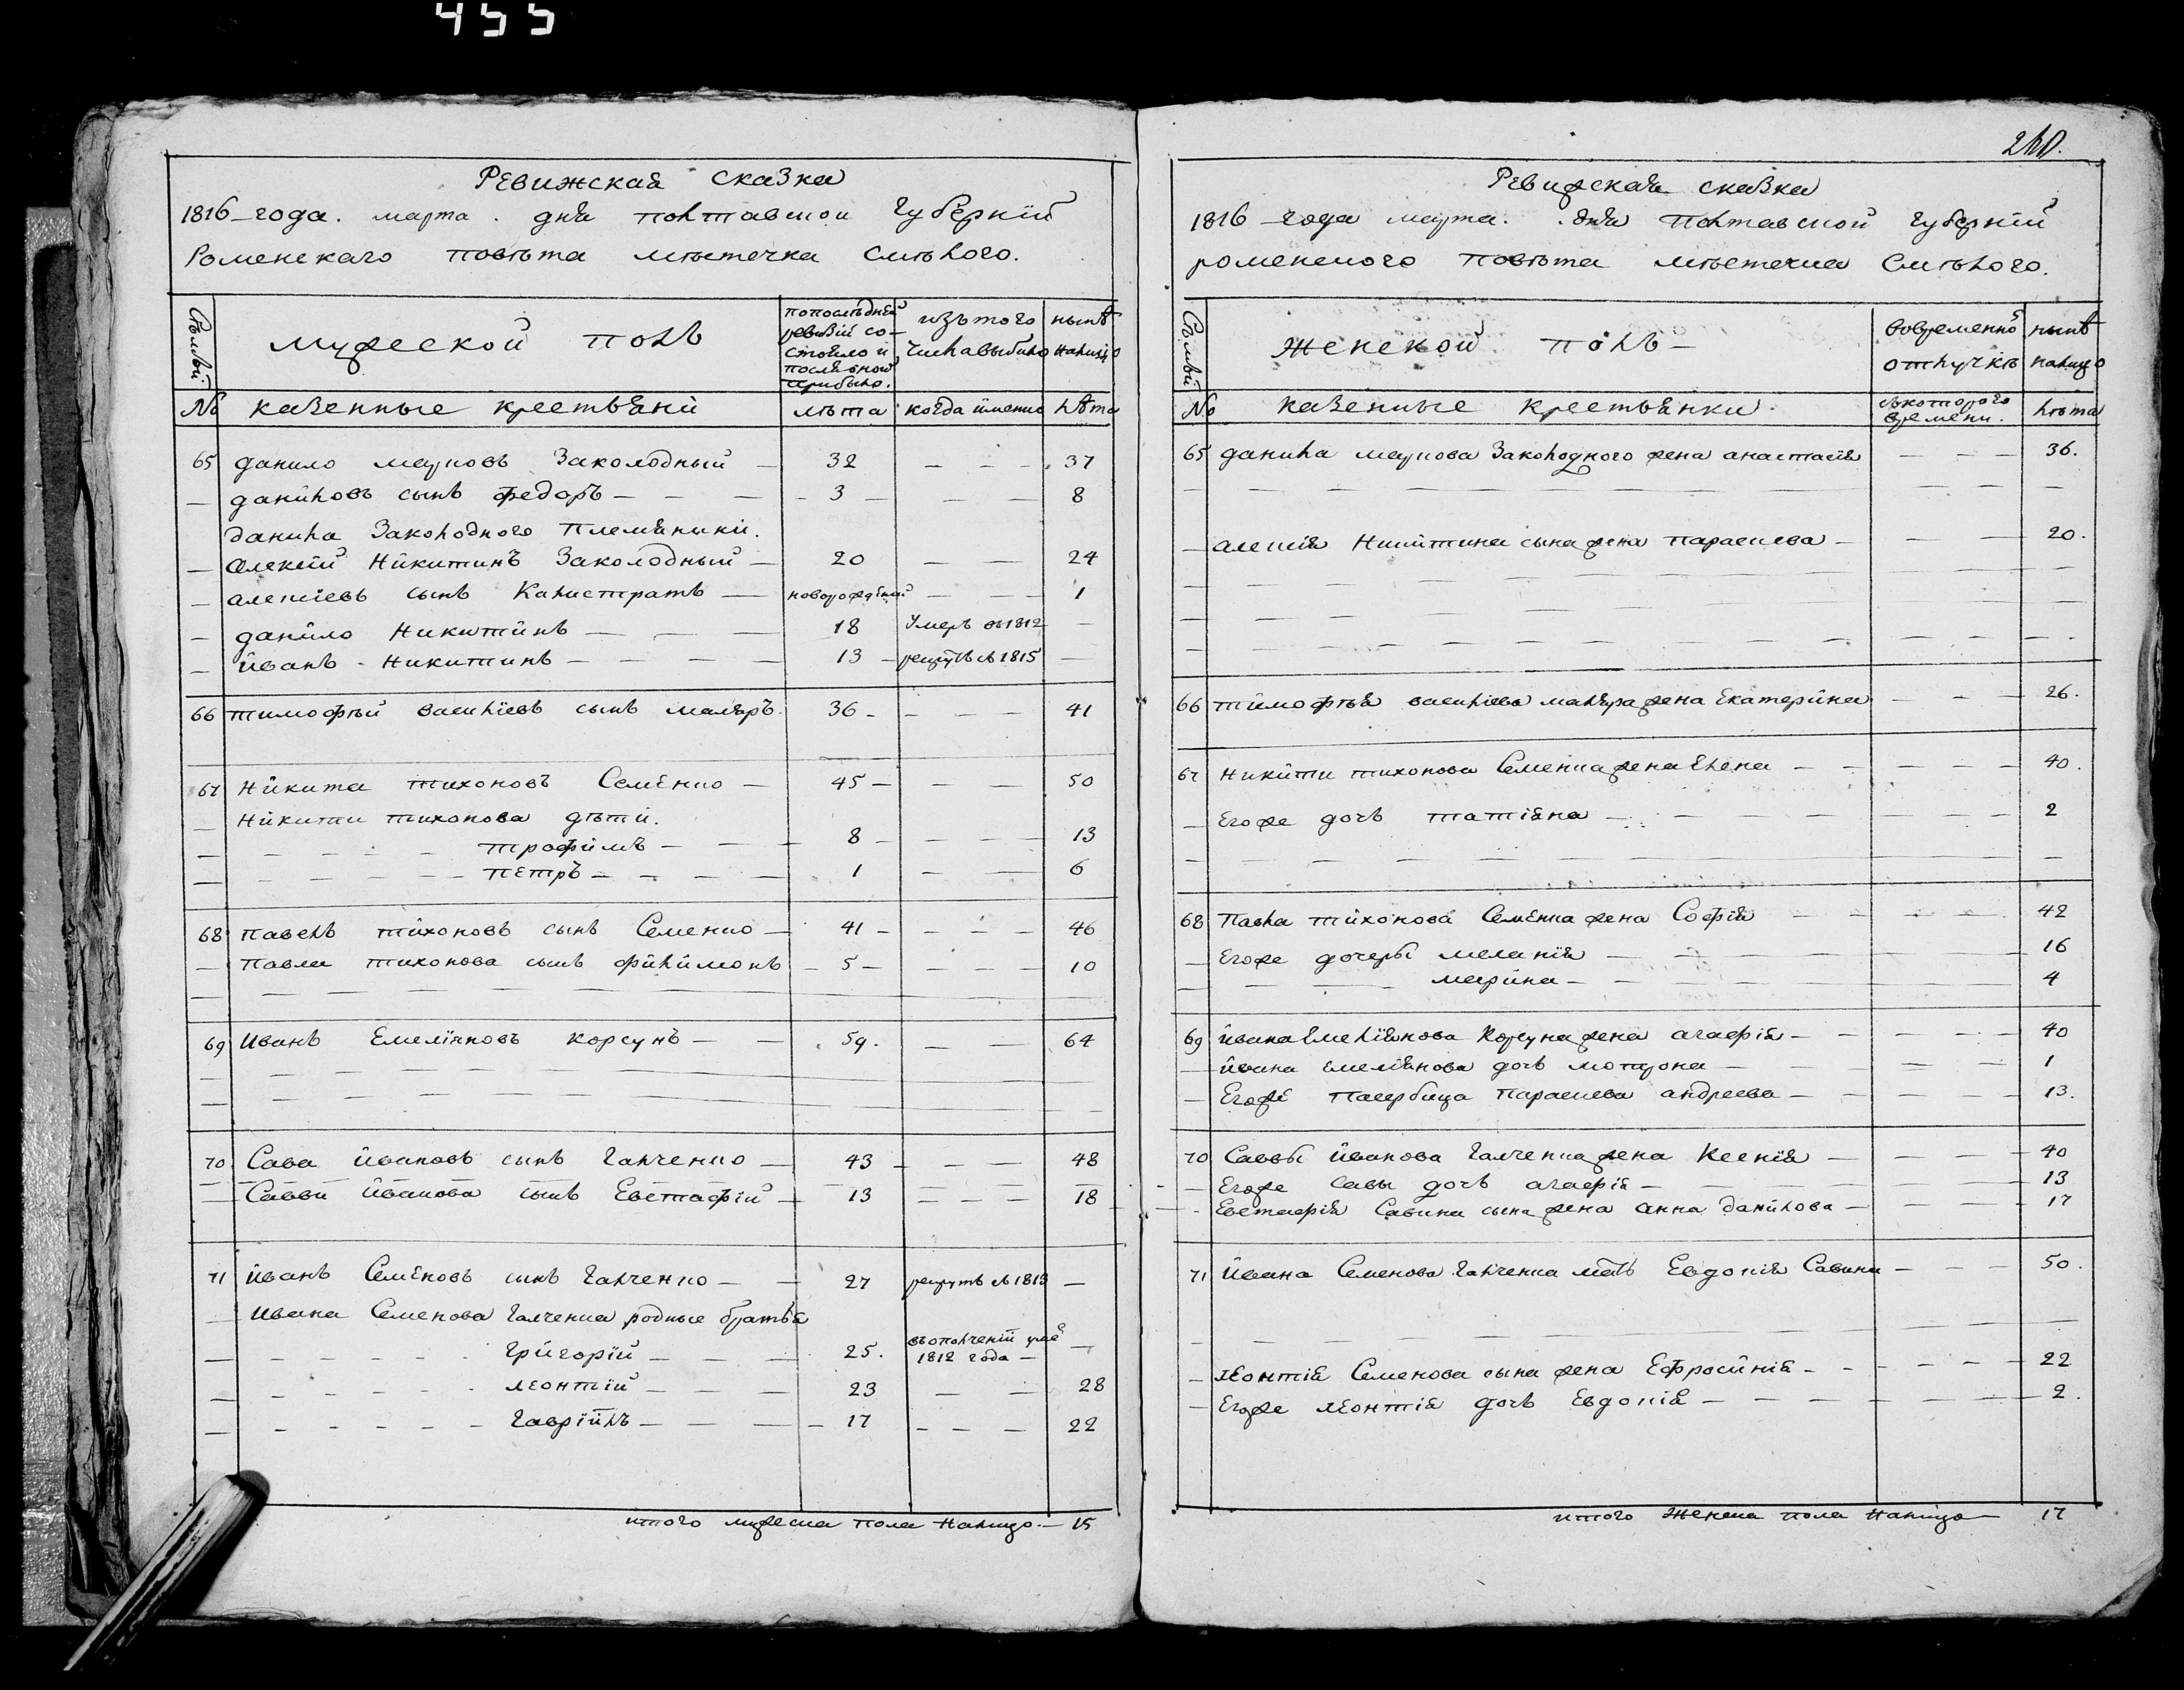 455
Ревижская сказка
1816 года. марта . дня полтавской губерній
Роменскаго повѣта мѣстечка Смѣлого.
Сѣмьи
мужеской полъ
попослѣдней ревизіи состояло и послѣ оной прибыло.
изъ того числа выбыло
нынѣ налицо
№ казенные крестьяни
лѣта
когда имянно
лѣта
65 данило марковъ Заколодный — 32 — — — 37
— даниловъ сынъ федоръ — — — 3 — — — 8
данила Заколодного племяники.
— алексій Никитинъ Заколодный — 20 — — 24
— алексіевъ сынъ Калистратъ — новорожденый — — 1
— данило Никитинъ — — — 18 умеръ въ 1812 —
— иванъ Никитинъ — — — — 13 — рекрутъ въ 1815 —
66 тимофѣй василіевъ сынъ маляръ. 36 — — — — 41
67 Никита тихоновъ Семенко — 45 — — — 50
— Никити тихонова дѣти.
— — — — — — трофимъ — — — 8 — — — 13
— — — — — — петръ — — — — 1 — — 6
68 павелъ тихоновъ сынъ Семенко — 41 — — — 46
— павла тихонова сынъ филимонъ — 5 — — — — 10
69 Иванъ Емеліяновъ корсунъ — — 59. — — 64
70 Сава ивановъ сынъ Галченко — 43 — — — 48
— Савви иванова сынъ Евстафій — 13 — — — 18
71 иванъ Семеновъ сынъ Галченко — — 27 рекрутъ въ 1813 —
— Ивана Семенова Галченка родные братья
— — — — — — Григорій — — — 25. въ ополченіи 1812 года — —
— — — — — — леонтій — — — 23 — — 28
— — — — — — Гавріилъ — — — 17 — — — 22
итого мужеска пола налицо — 15
240.
Ревижская сказка
1816 года марта. дня полтавской губерній
роменского повѣта мѣстечка Смѣлого.
Сѣмьи
Женской полъ —
вовременной отлучкѣ
нынѣ налицо
№ казенные крестьянки
съ которого времени.
лѣта
65 данила маркова Заколодного жена анастасія — — — 36.
— алексія Никитина сына жена параскева — — — 20.
66 тимофѣя василіева маляра жена Екатерина — — — 26.
67 Никити тихонова Семенка жена Елена — — — — — 40.
— Егоже дочь татіяна — — — — — 2
68 Павла тихонова Семенка жена Софія — — — — 42
— Егоже дочеры меланія — — — — 16
— — — марина — — — 4
69 ивана Емеліянова Корсуна жена агафія — — — — 40
— ивана емеліянова дочь мотрона — — — — 1
— Егоже пасербица параскева андреева — — — — 13.
70 Саввы иванова Галченка жена Ксенія — — — — 40
— Егоже Савы дочь агафія — — — — 13
— Евстафія Савина сына жена анна данилова — — — — 17
71 ивана Семенова Галченка мать Евдокія Савина — — — 50.
— леонтія Семенова сына жена Ефросинія — — — — — 22
— Егоже леонтія дочь Евдокія — — — — — 2.
итого Женска пола налицо — 17